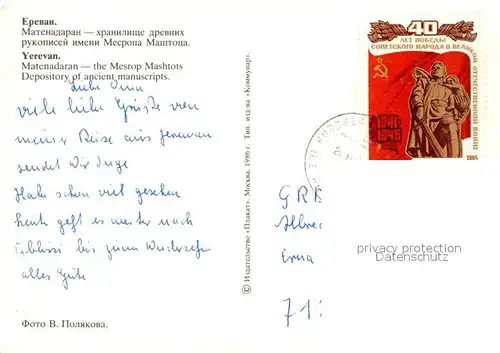 Ереван.
Матенадаран — хранилище древних
рукописей имени Месропа Маштоца.
Yerevan.
Matenadaran — the Mesrop Mashtots
Depository of ancient manuscripts.
Liebe Oma
viele liebe Grüße von
meiner Reise aus Jerewan
sendet Dir Inge
Habe schon viel gesehen
heute geht es weiter nach
Tiblissi bis zum Wiedersehn
alles Gute
Фото В. Полякова.
© Издательство «Плакат». Москва, 1986 г. Тип. изд-ва «Коммунар».
40
ЛЕТ ПОБЕДЫ
СОВЕТСКОГО НАРОДА В ВЕЛИКОЙ
ОТЕЧЕСТВЕННОЙ ВОЙНЕ
1941
1945
1985
GRE
Albre
Erna
71
privacy protection
Datenschutz